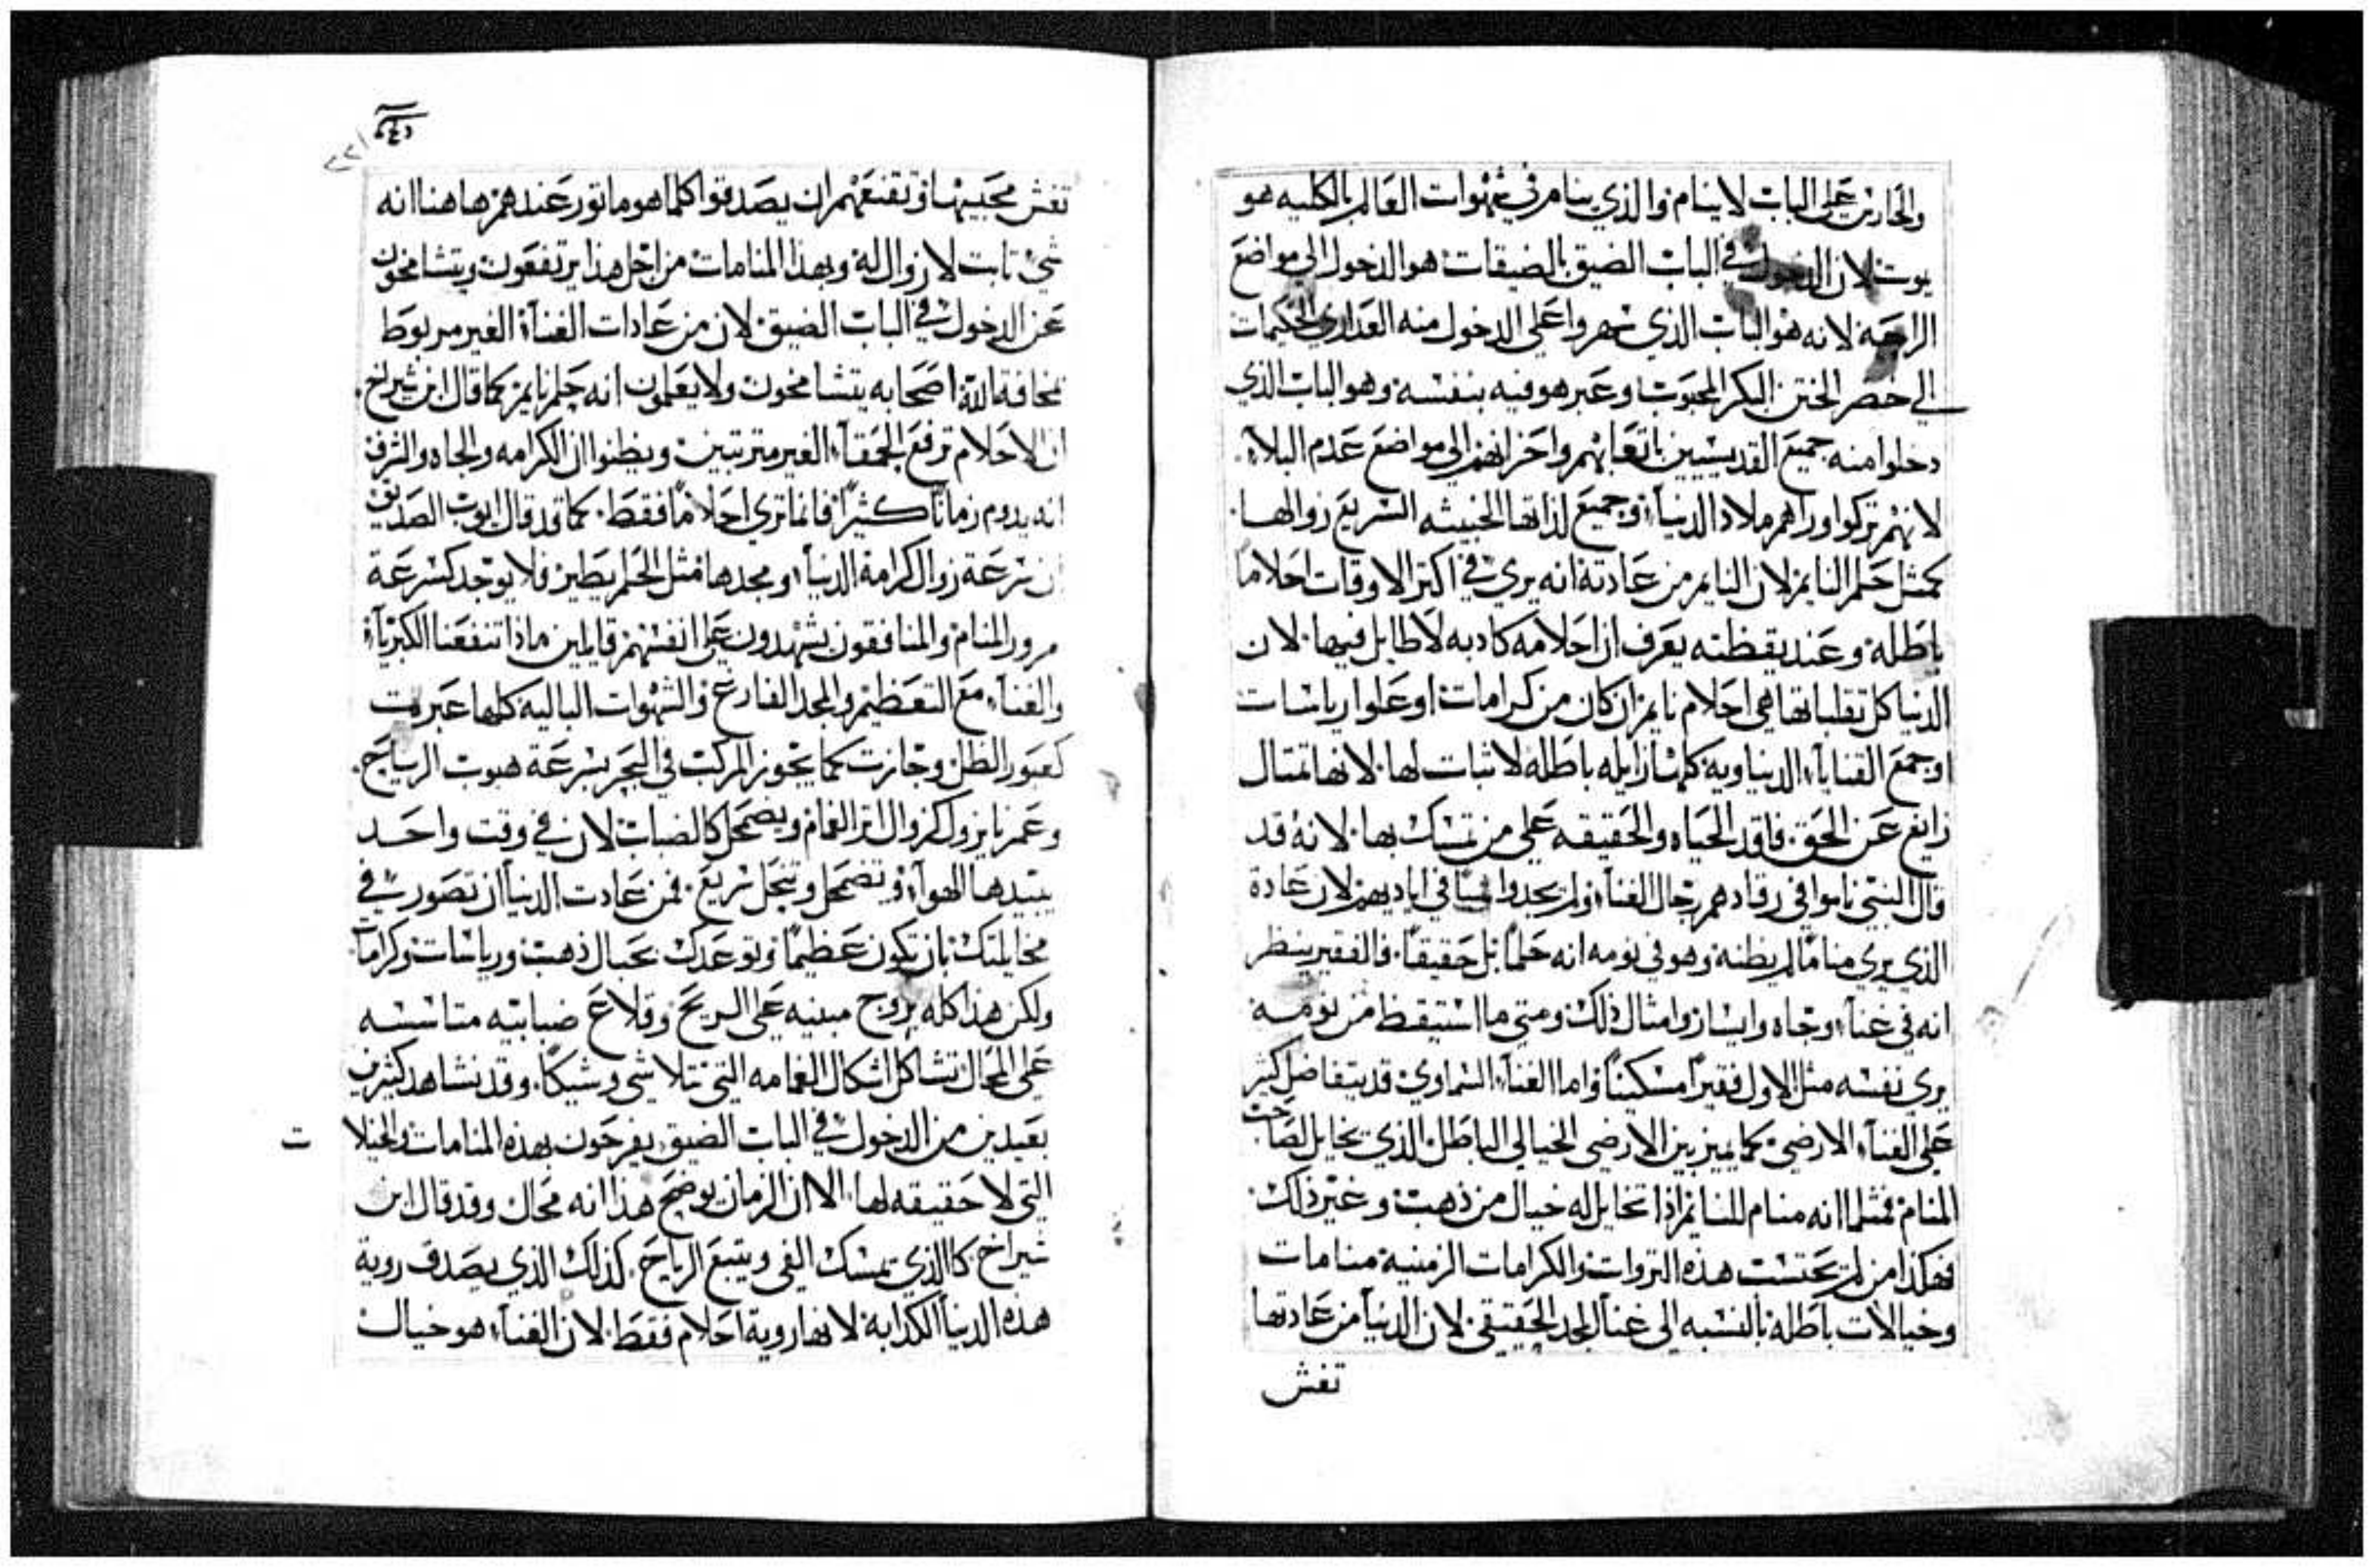 والحارس على الباب لا ينام والذي ينام في شهوات العالم بالكليه هو
يوت لان الدخول في الباب الضيق بالضيقات هو الدخول الى مواضع
الراحة لانه هو الباب الذي سهروا على الدخول منه العدارى الحكيمات
الي خصر الختن البكر المحبوب وعبر هو فيه بنفسه وهو الباب الذي
دخلوا منه جميع القديسيين باتعابهم واحزانهم الى مواضع عدم البلاء
لانهم تركوا وراهم ملاد الدنيا وجميع لذاتها الخبيثه السريع زوالها
كمثل حلم النايم لان النايم من عادته انه يري في اكثر الاوقات احلاما
باطله وعند يقظته يعرف ان احلامه كادبه لا طايل فيها لان
الدنيا كل تقلباتها هي احلام نايم ان كان من كرامات او علوا رياسات
او جمع القنايا الدنياويه كلها زايله باطله لا ثبات لها لانها تمتال
زايغ عن الحق فاقد الحياه والحقيقه على من تمسك بها لانه قد
قال النبي ناموا في رقادهم رجال الغناء ولم يجدوا شيا في اياديهم لان عادة
الذي يري مناما لم يظنه وهو في نومه انه حلما بل حقيقا فالفقير ينظر
انه في غناء وجاه وايسار وامثال ذلك ومتي ما استيقظ من نومه
يري نفسه مثل الاول فقيرا مسكينا واما الغناء السماوي قد يتفاضل كثير
على الغناء الارضي كما يميز بين الارضي الخيالي الباطل الذي تخايل لصاحب
المنام فمثلما انه منام للنايم اذا تخايل له خيال من ذهب وغير ذلك
فهكذا من لم يحتسب هذه التروات والكرامات الزمنية منامات
وخيالات باطله بالنسبه الى غنا المجد الحقيقي لان الدنيا من عادتها
تغش
تغش محبيها وتقنعهم ان يصدقوا كلما هو ماتور عندهم هاهنا انه
شي ثابت لا زوال له وبهذا المنامات من اجل هذا يرتفعون ويتشامخون
عن الدخول في الباب الضيق لان من عادات الغناء الغير مربوط
بمخافة الله اصحابه يتشامخون ولا يعلمون انه حلم نايم كما قال ابن شيراخ
ان الاحلام ترفع الحمقاء الغير مترتبين ويظنوا ان الكرامه والجاه والشرف
انه يدوم زمانا كثيرا فانما تري احلاما فقط كما قد قال ايوب الصديق
ان سرعة زوال كرامة الدنيا ومجدها مثل الحلم يطير فلا يوجد كسرعة
مرور المنام والمنافقون يشهدون على انفسهم قايلين ماذا تنفعنا الكبرياء
والغناء مع التعظيم والمجد الفارغ والشهوات الباليه كلها عبرت
كعبور الظل وجازت كما يجوز المركب في البحر بسرعة هبوب الرياح
وعمرنا يزول كزوال اثر الغمام ويضمحل كالضباب لان في وقت واحد
يبيدها الهواء وتضمحل وتنحل سريع فمن عادت الدنيا ان تصور في
مخايلتك بان تكون عظيما وتوعدك بحبال ذهب ورياسات وكرامات
ولكن هذا كله بروج مبنيه على الريح وقلاع ضبابيه متاسسه
على المحال تشاكل اشكال الغمامه التي تتلاشي وشيكا وقد نشاهد كثيرين
بعيدين من الدخول في الباب الضيق يفرحون بهذه المنامات والخيلا
ت
التي لا حقيقه لها الا ان الزمان يوضح هذا انه محال وقد قال ابن
شيراخ كالذي تمسك الفي ويتبع الرياح كذلك الذي يصدق روية
هذه الدنيا الكدابة لانها روية احلام فقط لان الغناء هو خيال